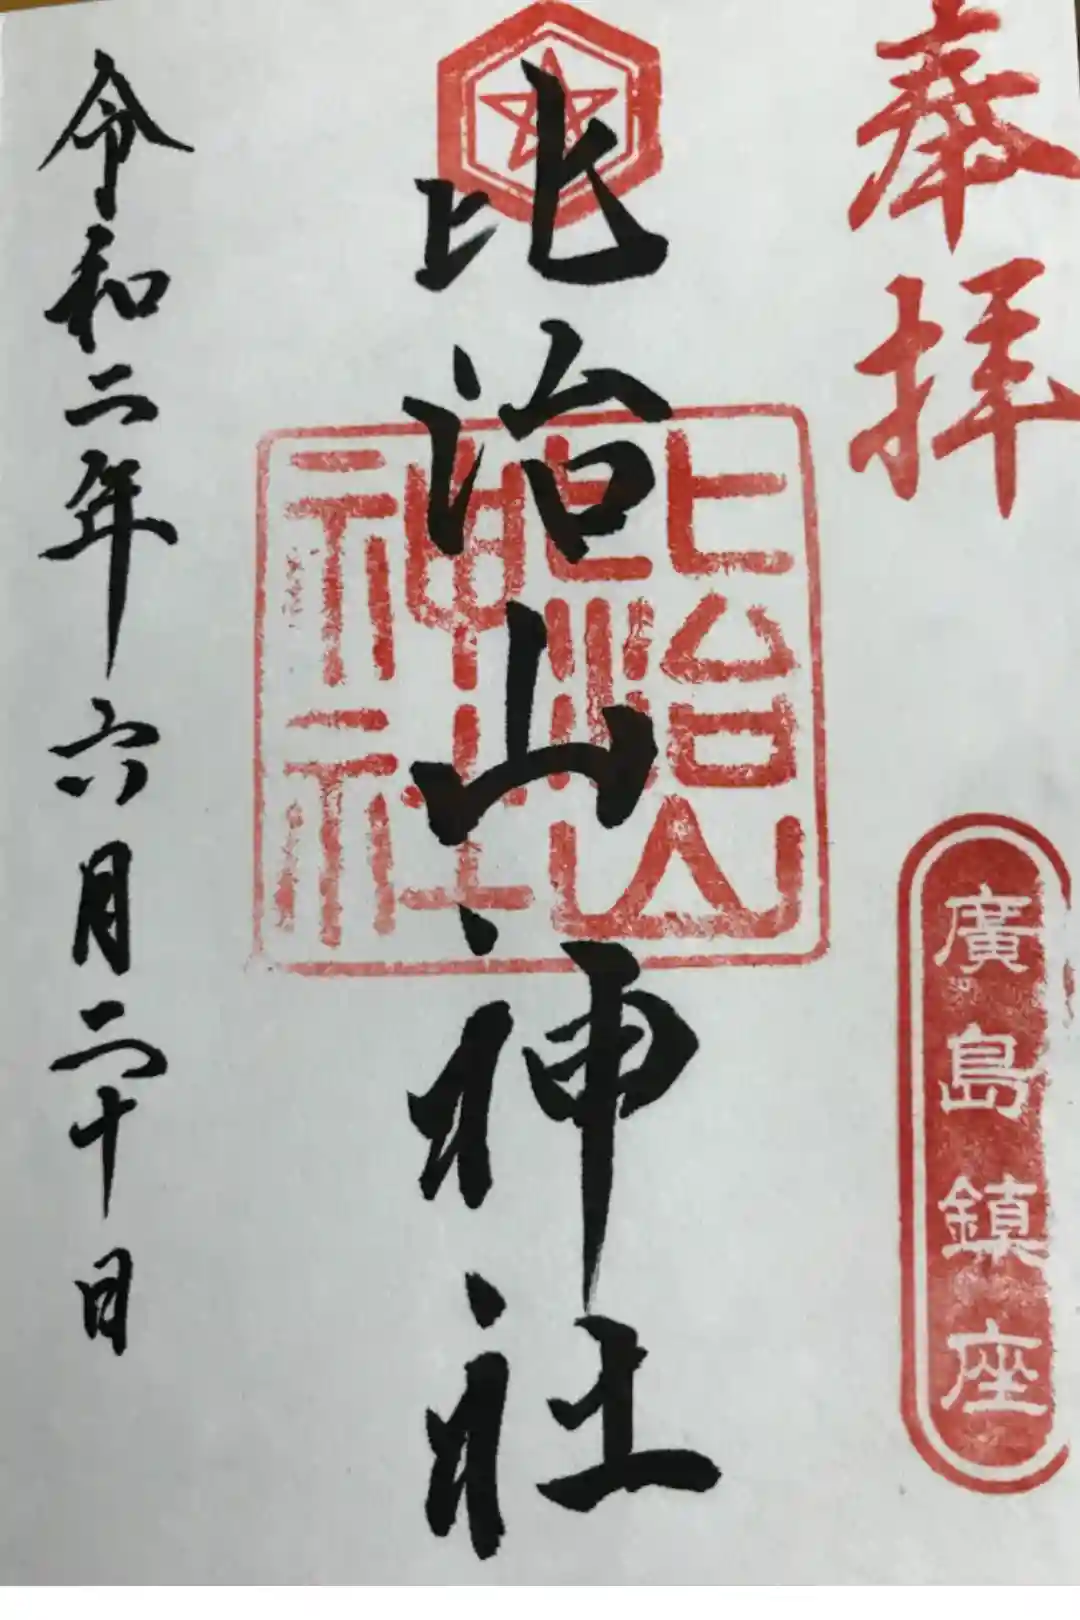 奉拝
廣島鎮座
比治山神社
比治山
神社
令和二年六月二十日